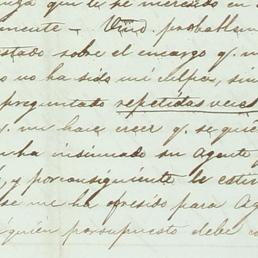 que se ha mercado en
mente — Vino probablem
estado sobre el encargo q.
no ha sido mi culpa, sin
preguntado repetidas veces
q. me hace creer q. se quie
ha insinuado su Agente
, y por consiguiente le esti
se me ha ofresido para Ag
quien por supuesto debe